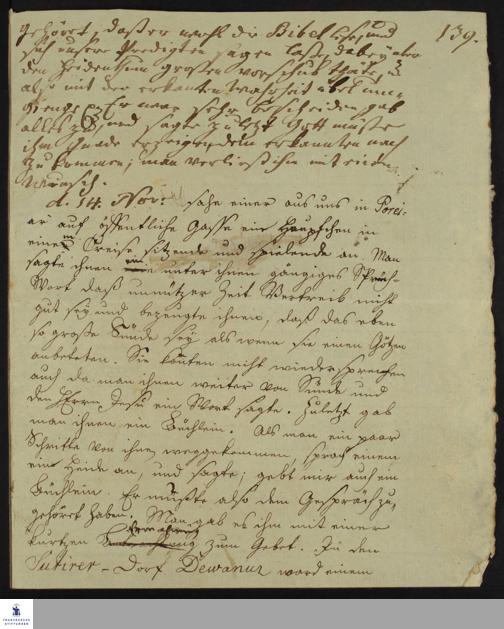 gehöret, daß er wohl die Bibel lese, und
sich unsere Predigten sagen lasse, dabey aber
dem Heidenthum großen Vorschub thäte, u.
also mit der erkanten Wahrheit übel um-
gienge. Er war sehr bescheiden gab
alles zu, und sagte zuletzt Gott müste
ihm Gnade erzeigen dem erkannten nach
zukommen; man verließ ihn mit einem
Wunsch.
139.
d. 14. Nov. sahe einer aus uns in Porei-
ar auf öffentliche Gasse ein Häufchen in
einem Kreise sitzende und spielende an. Man
sagte ihnen ein unter ihnen gängiges Sprüch-
Wort daß unnützer Zeit Vertreib nicht
gut sey und bezeugte ihnen, daß das eben
so große Sünde sey als wenn sie einen Götzen
anbeteten. Sie konten nicht wiedersprechen
auch da man ihnen weiter von Sünde und
den Herrn Jesu ein Wort sagte. Zuletzt gab
man ihnen ein Büchlein. Als man ein paar
Schritte von ihnen weggekommen, sprach einem
ein Heide an, und sagte; gebt mir auch ein
Büchlein. Er mußte also dem Gespräch zu-
gehöret haben. Man gab es ihm mit einer
kurtzen Ermahnung zum Gebet. In dem
Sutirer-Dorf Dewanur ward einem
FRANCKESCHE
STIFTUNGEN